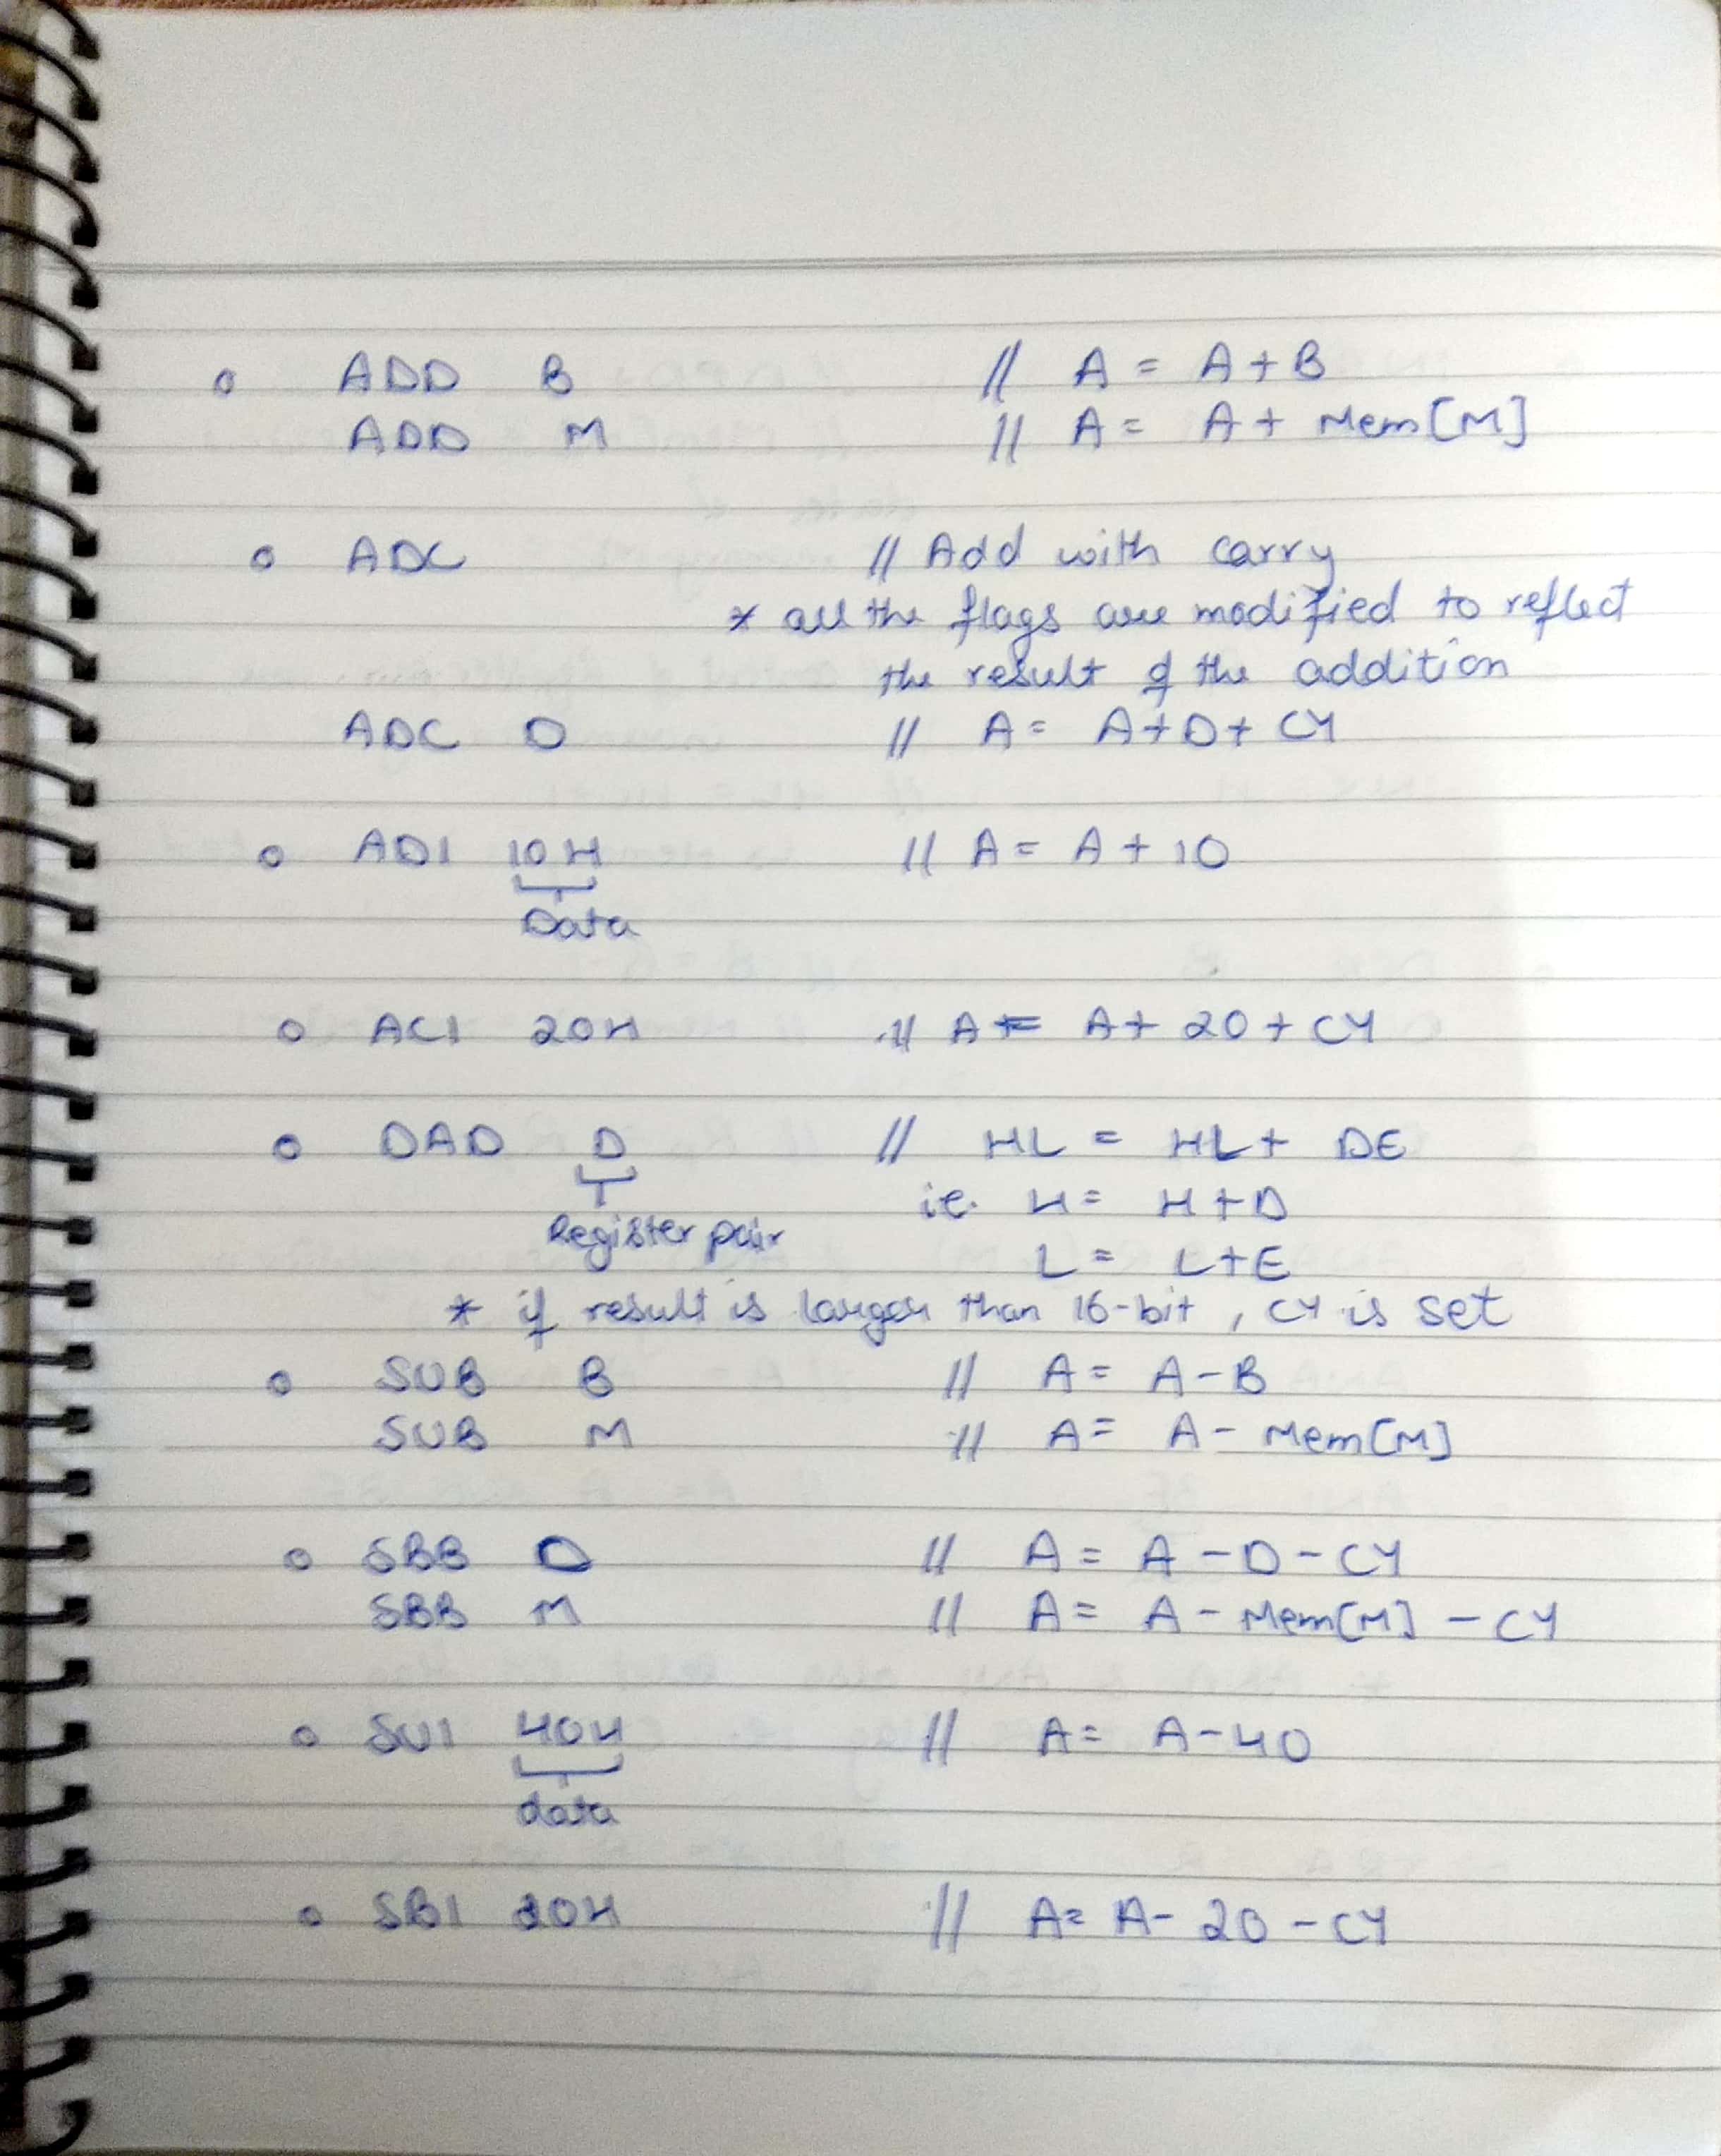 o ADD B // A = A + B
ADD M // A = A + Mem[M]
o ADC // Add with carry
* all the flags are modified to reflect
the result of the addition
ADC D // A = A+D+ CY
o ADI 10H // A = A + 10
Data
o ACI 20H // A = A+ 20 + CY
o DAD D // HL = HL + DE
ie. H = H + D
Register pair
L = L+E
* if result is larger than 16-bit, CY is set
o SUB B // A = A - B
SUB M // A = A - Mem[M]
o SBB D // A = A - D - CY
SBB M // A = A - Mem[M] - CY
o SUI 40H // A = A-40
data
o SBI 20H // A = A - 20 - CY